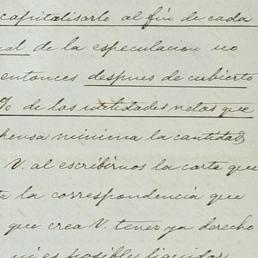 capitalisarlo al fin de cada
ual de la especulacion no
entonces despues de cubierto
% de las utilidades netas que
pensa minima la cantidad
V. al escribirnos la carta que
ta la correspondencia que
que crea V. tener ya derecho
ni es posible liquidar